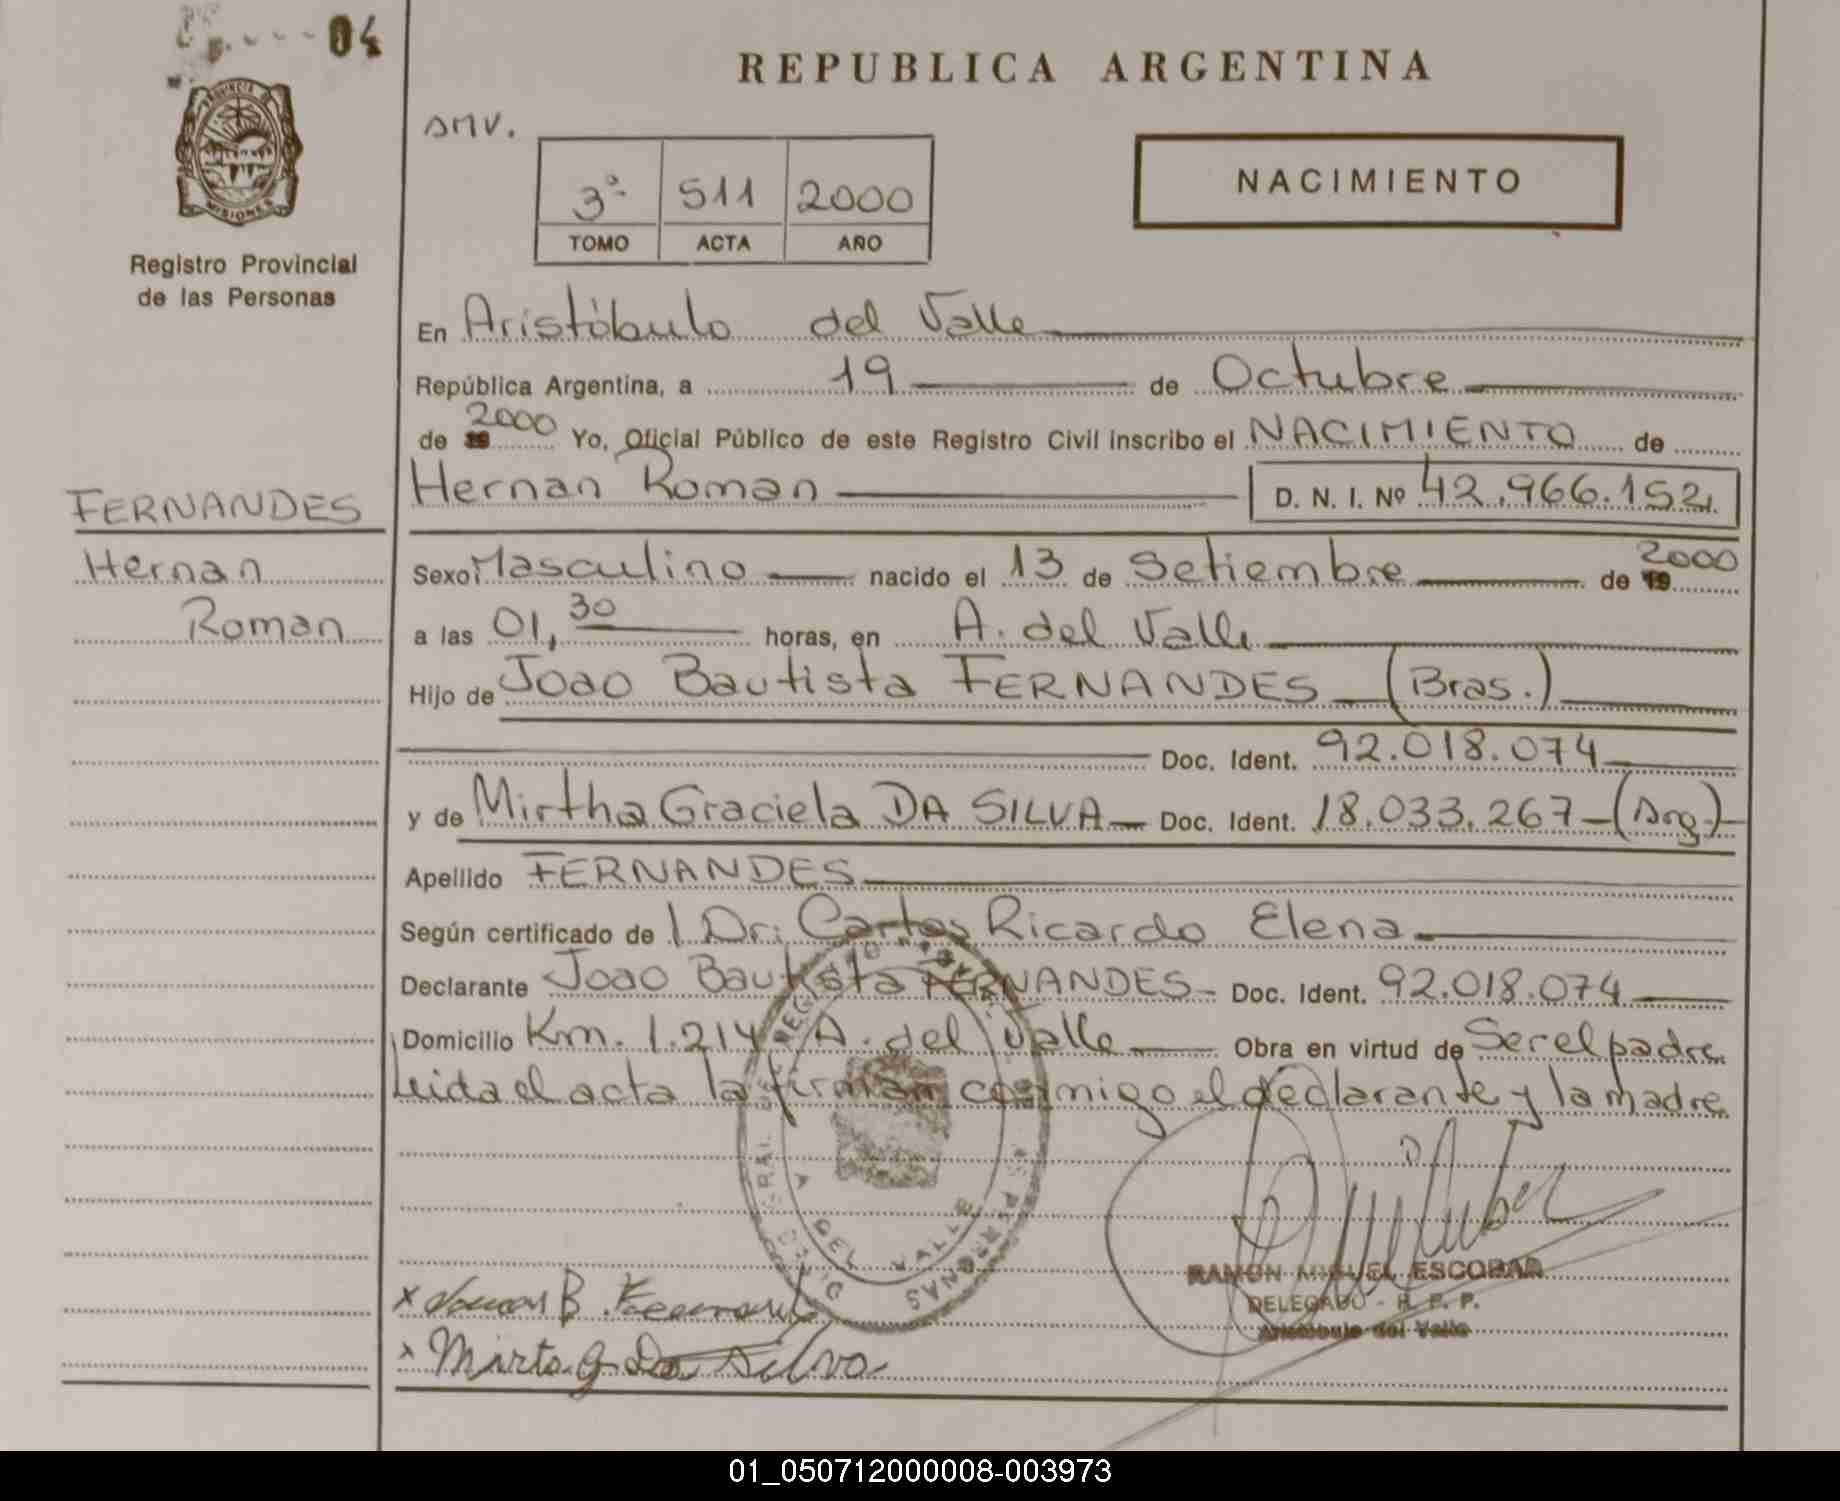 04
REPUBLICA ARGENTINA
PROVINCIA
MISIONES
Registro Provincial
de las Personas
SMV.
3º 511 2000
TOMO ACTA AÑO
NACIMIENTO
En Aristóbulo del Valle
República Argentina, a 19 de Octubre
de 19 2000 Yo, Oficial Público de este Registro Civil inscribo el NACIMIENTO de
Hernan Roman D. N. I. Nº 42.966.152
FERNANDES
Hernan
Roman
Sexo Masculino nacido el 13 de Setiembre de 19 2000
a las 01,30 horas, en A. del Valle
Hijo de Joao Bautista FERNANDES (Bras.)
Doc. Ident. 92.018.074
y de Mirtha Graciela DA SILVA Doc. Ident. 18.033.267 (Arg.)
Apellido FERNANDES
Según certificado de / Dr. Carlos Ricardo Elena
Declarante Joao Bautista FERNANDES Doc. Ident. 92.018.074
Domicilio Km. 1.214 A. del Valle Obra en virtud de Ser el padre
Leida el acta la firman conmigo el declarante y la madre
A DEL VALLE
RAMON MIGUEL ESCOBAR
DELEGADO - R. P. P.
Aristobulo del Valle
x B.
x Mirta G Da Silva
01_050712000008-003973